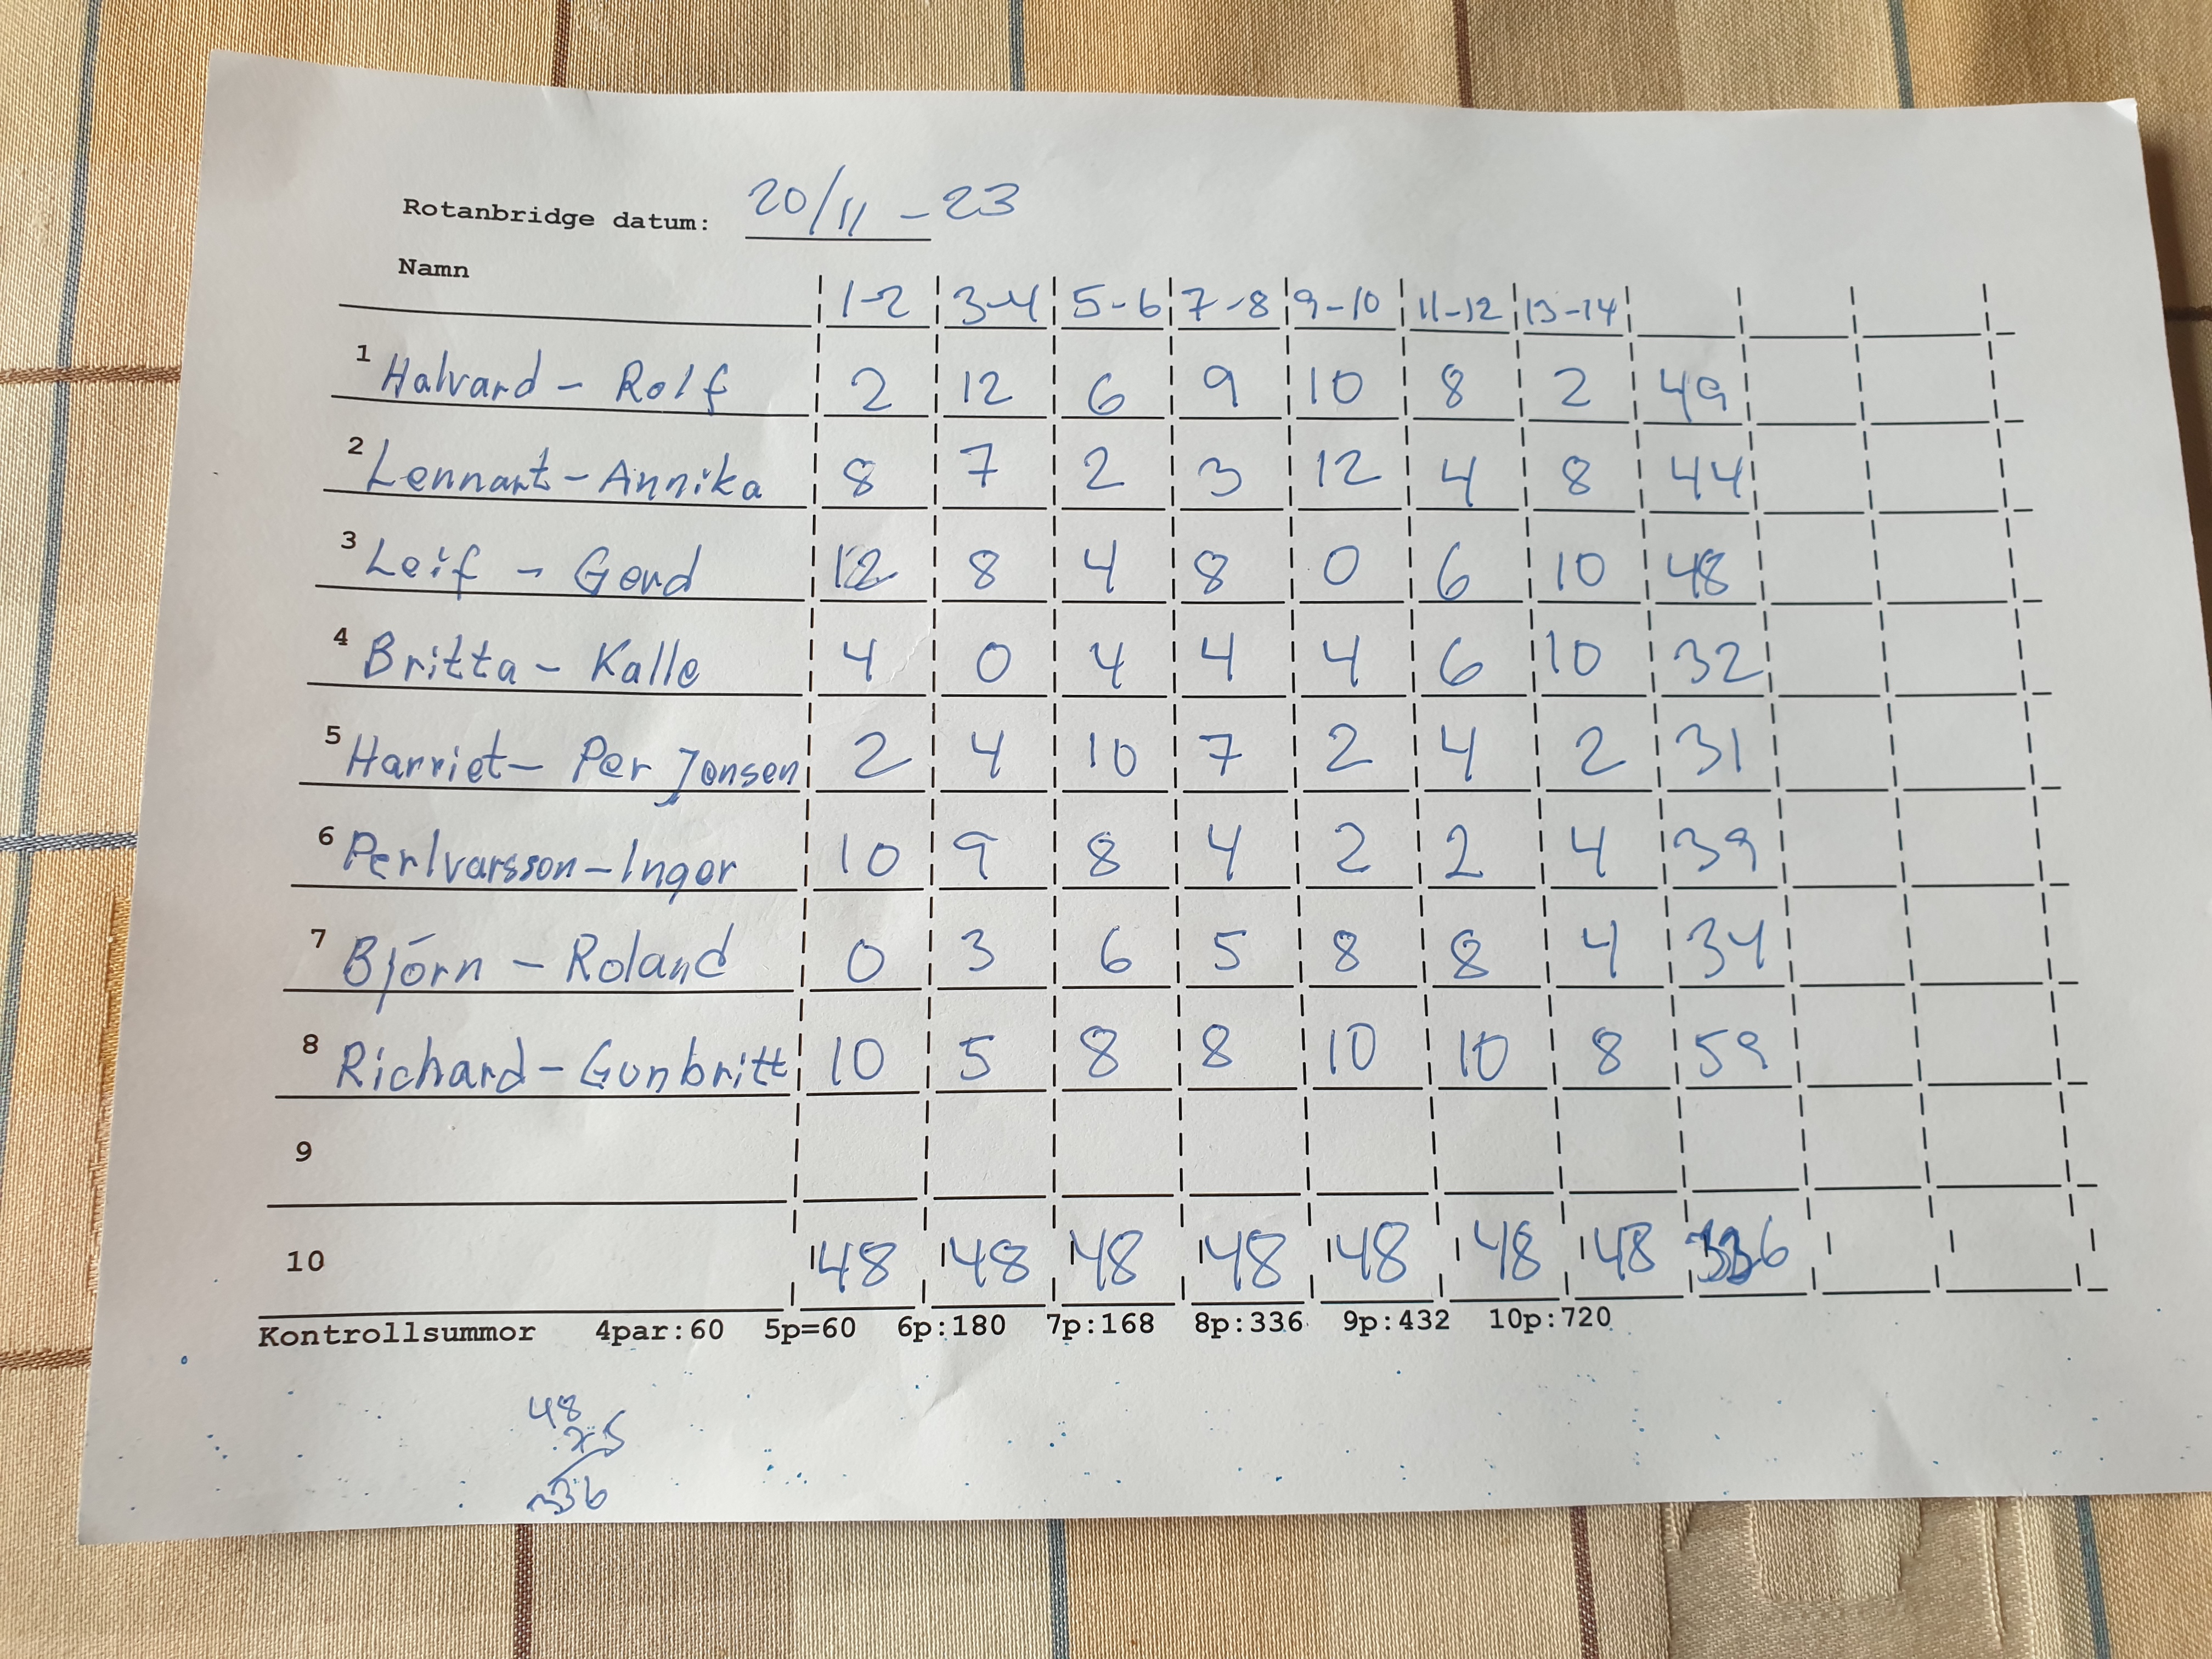 Rotanbridge datum: 20/11 - 23
Namn 1-2 3-4 5-6 7-8 9-10 11-12 13-14
1 Halvard - Rolf 2 12 6 9 10 8 2 49
2 Lennart - Annika 8 7 2 3 12 4 8 44
3 Leif - Gerd 12 8 4 8 0 6 10 48
4 Britta - Kalle 4 0 4 4 4 6 10 32
5 Harriet - Per Jonsen 2 4 10 7 2 4 2 31
6 Per Ivarsson - Inger 10 9 8 4 2 2 4 39
7 Björn - Roland 0 3 6 5 8 8 4 34
8 Richard - Gunbritt 10 5 8 8 10 10 8 59
9
10 48 48 48 48 48 48 48 336
Kontrollsummor 4par:60 5p=60 6p:180 7p:168 8p:336 9p:432 10p:720
48
336